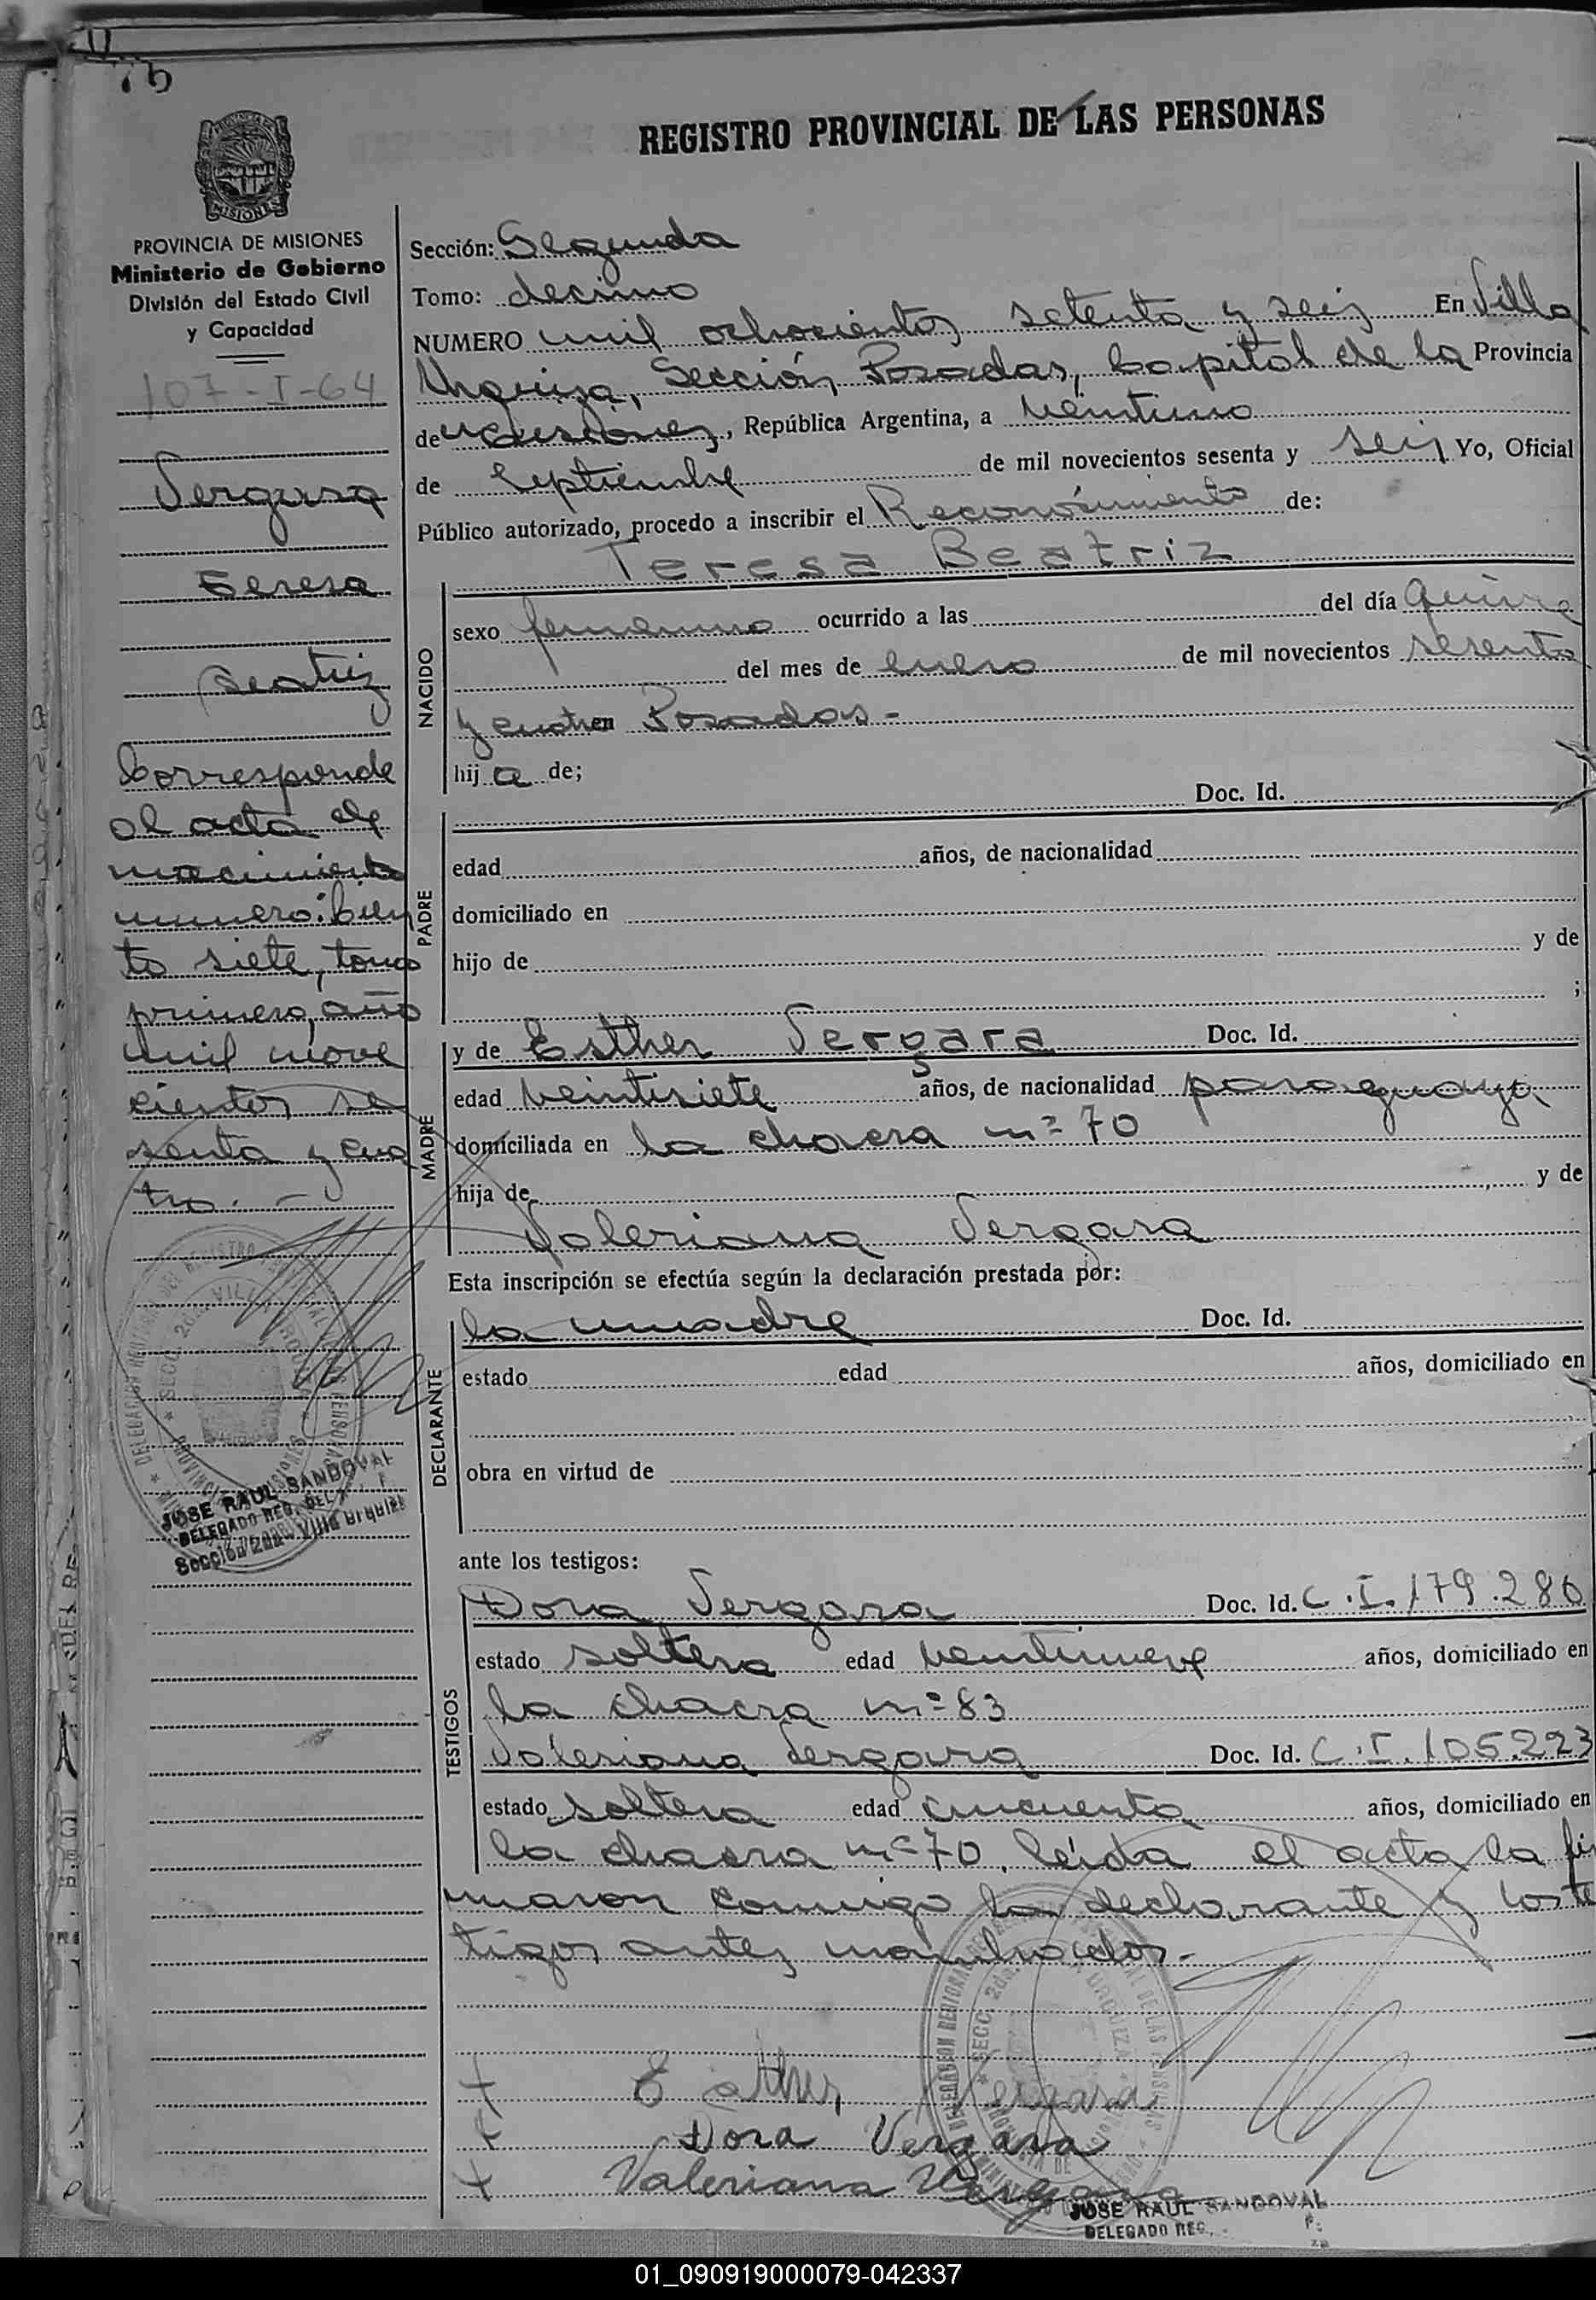 76
REGISTRO PROVINCIAL DE LAS PERSONAS
PROVINCIA DE MISIONES
MISIONES
PROVINCIA DE MISIONES
Ministerio de Gobierno
División del Estado Civil
y Capacidad
107-I-64
Vergara
Teresa
Beatriz
Corresponde
al acta de
nacimiento
numero: Cien
to siete, tomo
primero, año
mil nove
cientos se
senta y cua
tro. -
JOSE RAUL SANDOVAL
DELEGADO REG. DEL
Sección 2da. Villa Urquiza
Sección: Segunda
Tomo: decimo
NUMERO mil ochocientos setenta y seis En Villa
Urquiza, Sección Posadas, Capital de la Provincia
de Misiones, República Argentina, a Veintiuno
de Septiembre de mil novecientos sesenta y seis Yo, Oficial
Público autorizado, procedo a inscribir el Reconocimiento de:
Teresa Beatriz
NACIDO
sexo femenino ocurrido a las del día quince
del mes de Enero de mil novecientos sesenta
y cuatro en Posadas -
hija de;
PADRE
Doc. Id.
edad años, de nacionalidad
domiciliado en
hijo de y de
;
MADRE
y de Esther Vergara Doc. Id.
edad Veintisiete años, de nacionalidad paraguaya
domiciliada en la chacra nº 70
hija de y de
Valeriana Vergara
Esta inscripción se efectúa según la declaración prestada por:
DECLARANTE
la madre Doc. Id.
estado edad años, domiciliado en
obra en virtud de
ante los testigos:
TESTIGOS
Dora Vergara Doc. Id. C.I. 179.286
estado soltera edad veintinueve años, domiciliado en
la chacra nº 83
Valeriana Vergara Doc. Id. C.I. 105.223
estado soltera edad cincuenta años, domiciliado en
la chacra nº 70. leída el acta la fir
maron conmigo la declarante y los tes
tigos antes nombrados.-
+ Esther Vergara
+ Dora Vergara
+ Valeriana Vergara
JOSE RAUL SANDOVAL
DELEGADO REG.
01_090919000079-042337